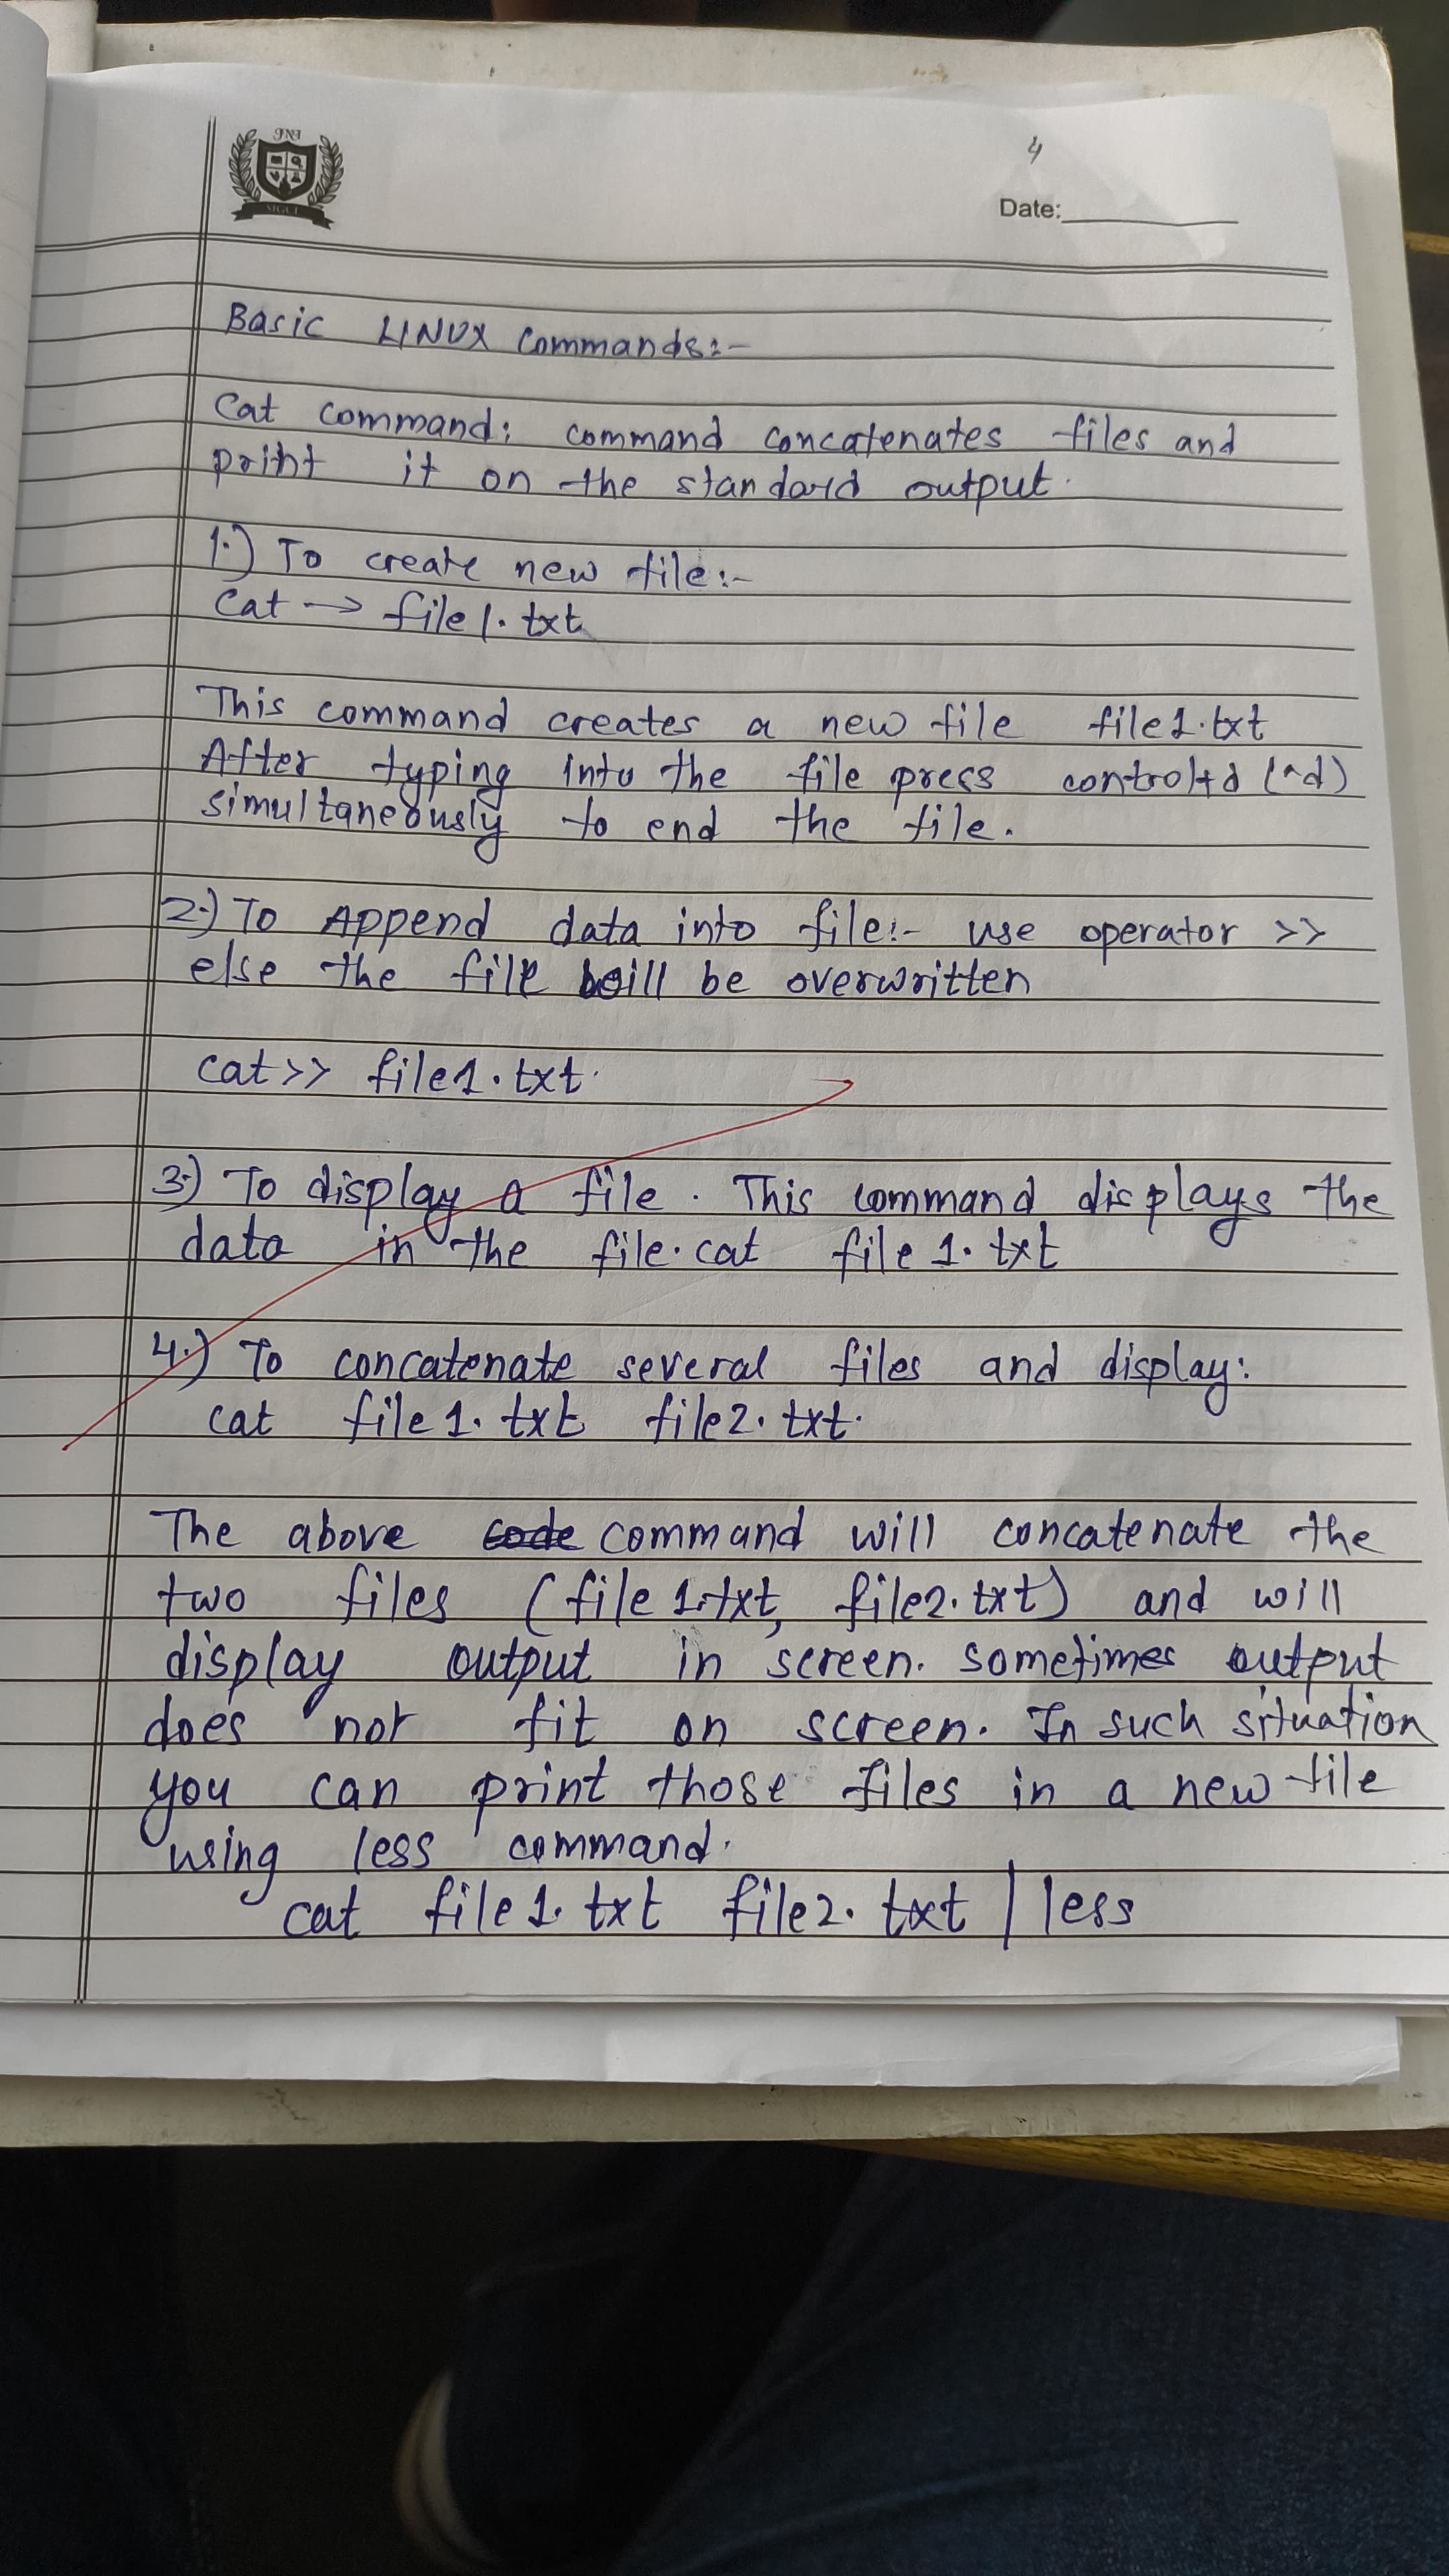 JNJ
4
Date:
Basic LINUX Commands:-
Cat command: command concatenates files and
print it on the standard output.
1.) To create new file:-
Cat → file1.txt
This command creates a new file file1.txt
After typing into the file press control+d (^d)
simultaneously to end the file.
2.) To Append data into file:- use operator >>
else the file will be overwritten
cat>> file1.txt.
3.) To display a file. This command displays the
data in the file. cat file1.txt
4.) To concatenate several files and display:
cat file1.txt file2.txt.
The above code command will concatenate the
two files (file1.txt, file2.txt) and will
display output in screen. sometimes output
does not fit on screen. In such situation
you can print those files in a new file
using less command.
cat file1.txt file2.txt | less